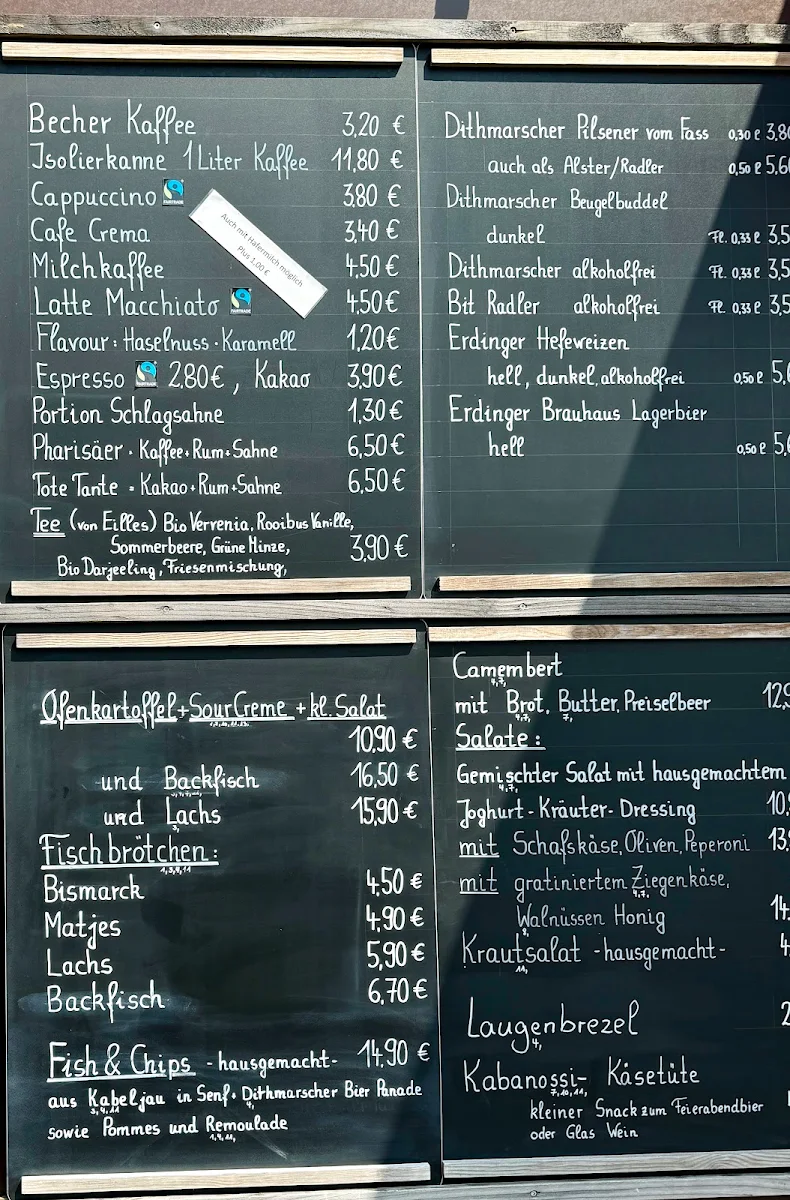 Becher Kaffee 3,20 €
Isolierkanne 1 Liter Kaffee 11,80 €
Cappuccino FAIRTRADE 3,80 €
Auch mit Hafermilch möglich
Plus 1,00 €
Cafe Crema 3,40 €
Milchkaffee 4,50 €
Latte Macchiato FAIRTRADE 4,50 €
Flavour: Haselnuss · Karamell 1,20 €
Espresso FAIRTRADE 2,80€, Kakao 3,90 €
Portion Schlagsahne 1,30 €
Pharisäer · Kaffee+Rum+Sahne 6,50 €
Tote Tante · Kakao+Rum+Sahne 6,50 €
Tee (von Eilles) Bio Vervenia, Rooibus Vanille,
Sommerbeere, Grüne Minze, 3,90 €
Bio Darjeeling, Friesenmischung,
Dithmarscher Pilsener vom Fass 0,30 l 3,80
auch als Alster/Radler 0,50 l 5,60
Dithmarscher Beugelbuddel
dunkel Fl. 0,33 l 3,5
Dithmarscher alkoholfrei Fl. 0,33 l 3,5
Bit Radler alkoholfrei Fl. 0,33 l 3,5
Erdinger Hefeweizen
hell, dunkel, alkoholfrei 0,50 l 5,
Erdinger Brauhaus Lagerbier
hell 0,50 l 5,
Ofenkartoffel + Sour Creme + kl. Salat
10,90 €
und Backfisch 16,50 €
und Lachs 15,90 €
Fischbrötchen:
1,3,4,11
Bismarck 4,50 €
Matjes 4,90 €
Lachs 5,90 €
Backfisch 6,70 €
Fish & Chips - hausgemacht- 14,90 €
aus Kabeljau in Senf + Dithmarscher Bier Panade
3,4,11 4,
sowie Pommes und Remoulade
1,4,11,
Camembert
4,7,
mit Brot, Butter, Preiselbeer 12,9
4,7, 7,
Salate:
Gemischter Salat mit hausgemachtem
4,7,
Joghurt - Kräuter - Dressing 10,
mit Schafskäse, Oliven, Peperoni 13,
mit gratiniertem Ziegenkäse,
4,7,
Walnüssen Honig 14.
Krautsalat - hausgemacht - 4
11,
Laugenbrezel 2
4,
Kabanossi- Käsetüte
7,10,11,
kleiner Snack zum Feierabendbier
oder Glas Wein